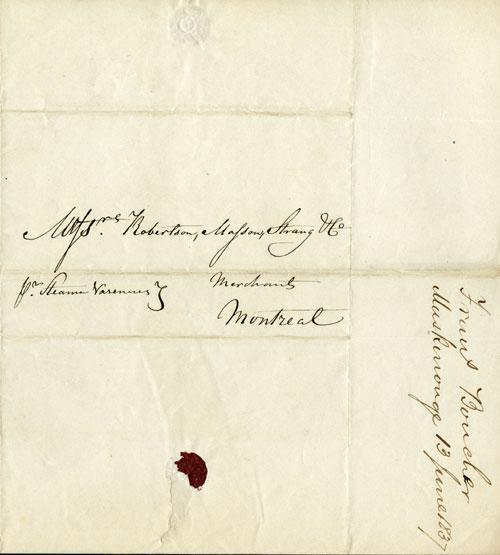 Messrs. Robertson, Masson, Strang & Co
pr. Steamer Varennes
Merchants
Montreal
Frans Boucher
Maskinongé 13 June 1837